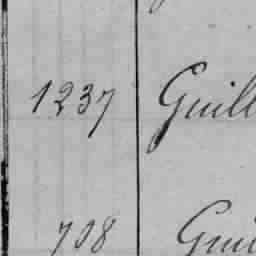 1237 Guill
708 Gui